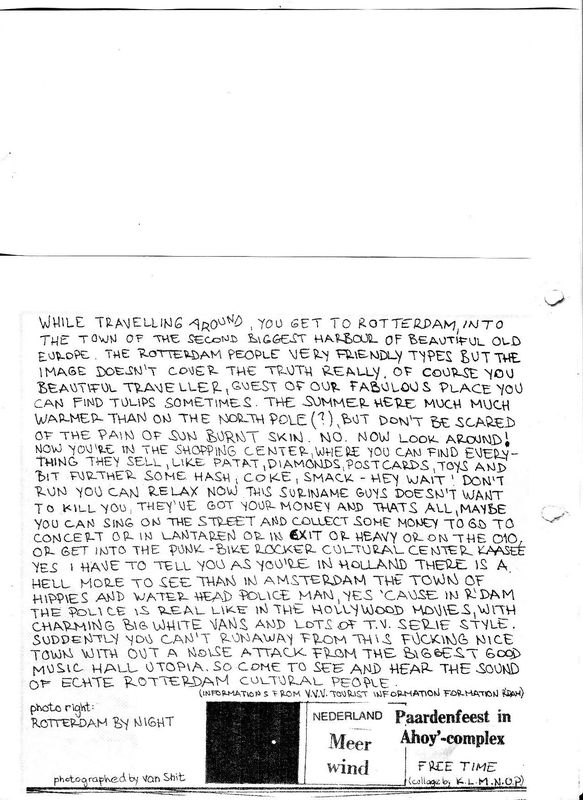 WHILE TRAVELLING AROUND, YOU GET TO ROTTERDAM, INTO
THE TOWN OF THE SECOND BIGGEST HARBOUR OF BEAUTIFUL OLD
EUROPE. THE ROTTERDAM PEOPLE VERY FRIENDLY TYPES BUT THE
IMAGE DOESN'T COVER THE TRUTH REALLY. OF COURSE YOU
BEAUTIFUL TRAVELLER, GUEST OF OUR FABULOUS PLACE YOU
CAN FIND TULIPS SOMETIMES. THE SUMMER HERE MUCH MUCH
WARMER THAN ON THE NORTH POLE (?), BUT DON'T BE SCARED
OF THE PAIN OF SUN BURNT SKIN. NO. NOW LOOK AROUND!
NOW YOU'RE IN THE SHOPPING CENTER, WHERE YOU CAN FIND EVERY-
THING THEY SELL, LIKE PATAT, DIAMONDS, POSTCARDS, TOYS AND
BIT FURTHER SOME HASH, COKE, SMACK - HEY WAIT! DON'T
RUN YOU CAN RELAX NOW THIS SURINAME GUYS DOESN'T WANT
TO KILL YOU, THEY'VE GOT YOUR MONEY AND THATS ALL, MAYBE
YOU CAN SING ON THE STREET AND COLLECT SOME MONEY TO GO TO
CONCERT OR IN LANTAREN OR IN EXIT OR HEAVY OR ON THE 010,
OR GET INTO THE PUNK-BIKE ROCKER CULTURAL CENTER KAASEE
YES I HAVE TO TELL YOU AS YOU'RE IN HOLLAND THERE IS A
HELL MORE TO SEE THAN IN AMSTERDAM THE TOWN OF
HIPPIES AND WATER HEAD POLICE MAN, YES 'CAUSE IN R'DAM
THE POLICE IS REAL LIKE IN THE HOLLYWOOD MOVIES, WITH
CHARMING BIG WHITE VANS AND LOTS OF T.V. SERIE STYLE.
SUDDENTLY YOU CAN'T RUNAWAY FROM THIS FUCKING NICE
TOWN WITH OUT A NOISE ATTACK FROM THE BIGGEST GOOD
MUSIC HALL UTOPIA. SO COME TO SEE AND HEAR THE SOUND
OF ECHTE ROTTERDAM CULTURAL PEOPLE.
(INFORMATIONS FROM V.V.V. TOURIST INFORMATION FORMATION RDAM)
photo right:
ROTTERDAM BY NIGHT
photographed by van Shit
NEDERLAND
Meer
wind
Paardenfeest in
Ahoy'-complex
FREE TIME
(collage by K.L.M.N.O.P)